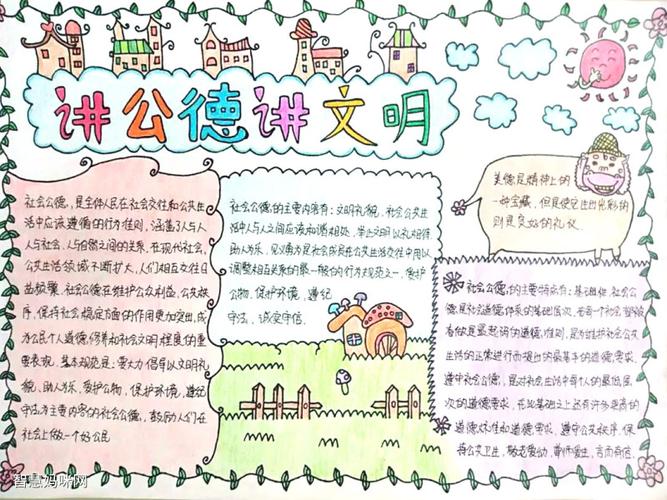 讲公德讲文明
社会公德，是全体人民在社会交往和公共生
活中应该遵循的行为准则，涵盖了人与人
人与社会、人与自然之间的关系，在现代社会，
公共生活领域不断扩大，人们相互交往日
益频繁，社会公德在维护公众利益，公共秩
序，保持社会稳定方面的作用更加突出，成
为公民个人道德修养和社会文明程度的重
要表现，基本规范是：要大力倡导以文明礼
貌，助人为乐，爱护公物，保护环境，遵纪
守法为主要内容的社会公德，鼓励人们在
社会上做一个好公民
社会公德的主要内容有：文明礼貌，社会公共生
活中人与人之间应该和谐相处，举止文明以礼相待
助人为乐，见义勇为是社会成员在公共生活交往中用以
调整相互关系的最一般的行为规范之一，爱护
公物，保护环境，遵纪
守法，诚实守信
美德是精神上的
一种宝藏，但是使它生出光彩的
则是良好的礼仪
社会公德的主要特点有：基础性，社会公
德是社会道德体系的基础层次，
为维护社会公共
生活的正常进行而提出的最基本的道德要求，
遵守社会公德，是对社会生活中每个人的最低层
次的道德要求，在此基础之上还有许多更高的
道德标准和道德要求，遵守公共秩序，保
持公共卫生，敬老爱幼，尊师爱生，言而有信
智慧妈咪网